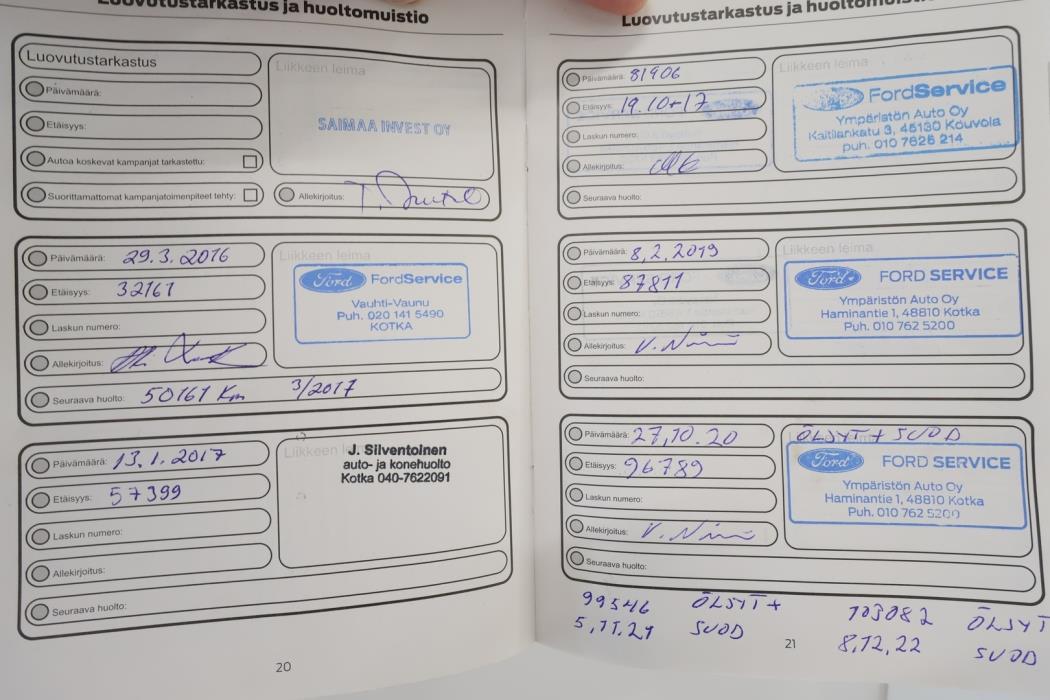 Luovutustarkastus ja huoltomuistio
Luovutustarkastus
Päivämäärä:
Etäisyys:
Autoa koskevat kampanjat tarkastettu:
Suorittamattomat kampanjatoimenpiteet tehty:
Liikkeen leima
SAIMAA INVEST OY
Allekirjoitus:
Päivämäärä: 29.3.2016
Etäisyys: 32161
Laskun numero:
Allekirjoitus:
Seuraava huolto: 50161 Km 3/2017
Liikkeen leima
Ford FordService
Vauhti-Vaunu
Puh. 020 141 5490
KOTKA
Päivämäärä: 13.1.2017
Etäisyys: 57399
Laskun numero:
Allekirjoitus:
Seuraava huolto:
Liikkeen
J. Silventoinen
auto- ja konehuolto
Kotka 040-7622091
20
Luovutustarkastus ja
Päivämäärä: 81906
Etäisyys: 19.10-17
Laskun numero:
Allekirjoitus:
Seuraava huolto:
Liikkeen leima
FordService
Ympäristön Auto Oy
Kaitilankatu 3, 45130 Kouvola
puh. 010 7626 214
Päivämäärä: 8,2,2019
Etäisyys: 87811
Laskun numero:
Allekirjoitus:
Seuraava huolto:
Liikkeen leima
Ford FORD SERVICE
Ympäristön Auto Oy
Haminantie 1, 48810 Kotka
Puh. 010 762 5200
Päivämäärä: 27,10.20
Etäisyys: 96789
Laskun numero:
Allekirjoitus:
Seuraava huolto:
ÖLJYT + SUOD
Ford FORD SERVICE
Ympäristön Auto Oy
Haminantie 1, 48810 Kotka
Puh. 010 762 5200
99546 ÖLJYT +
5,11,21 SUOD
103082 ÖLJYT
8,12,22 SUOD
21